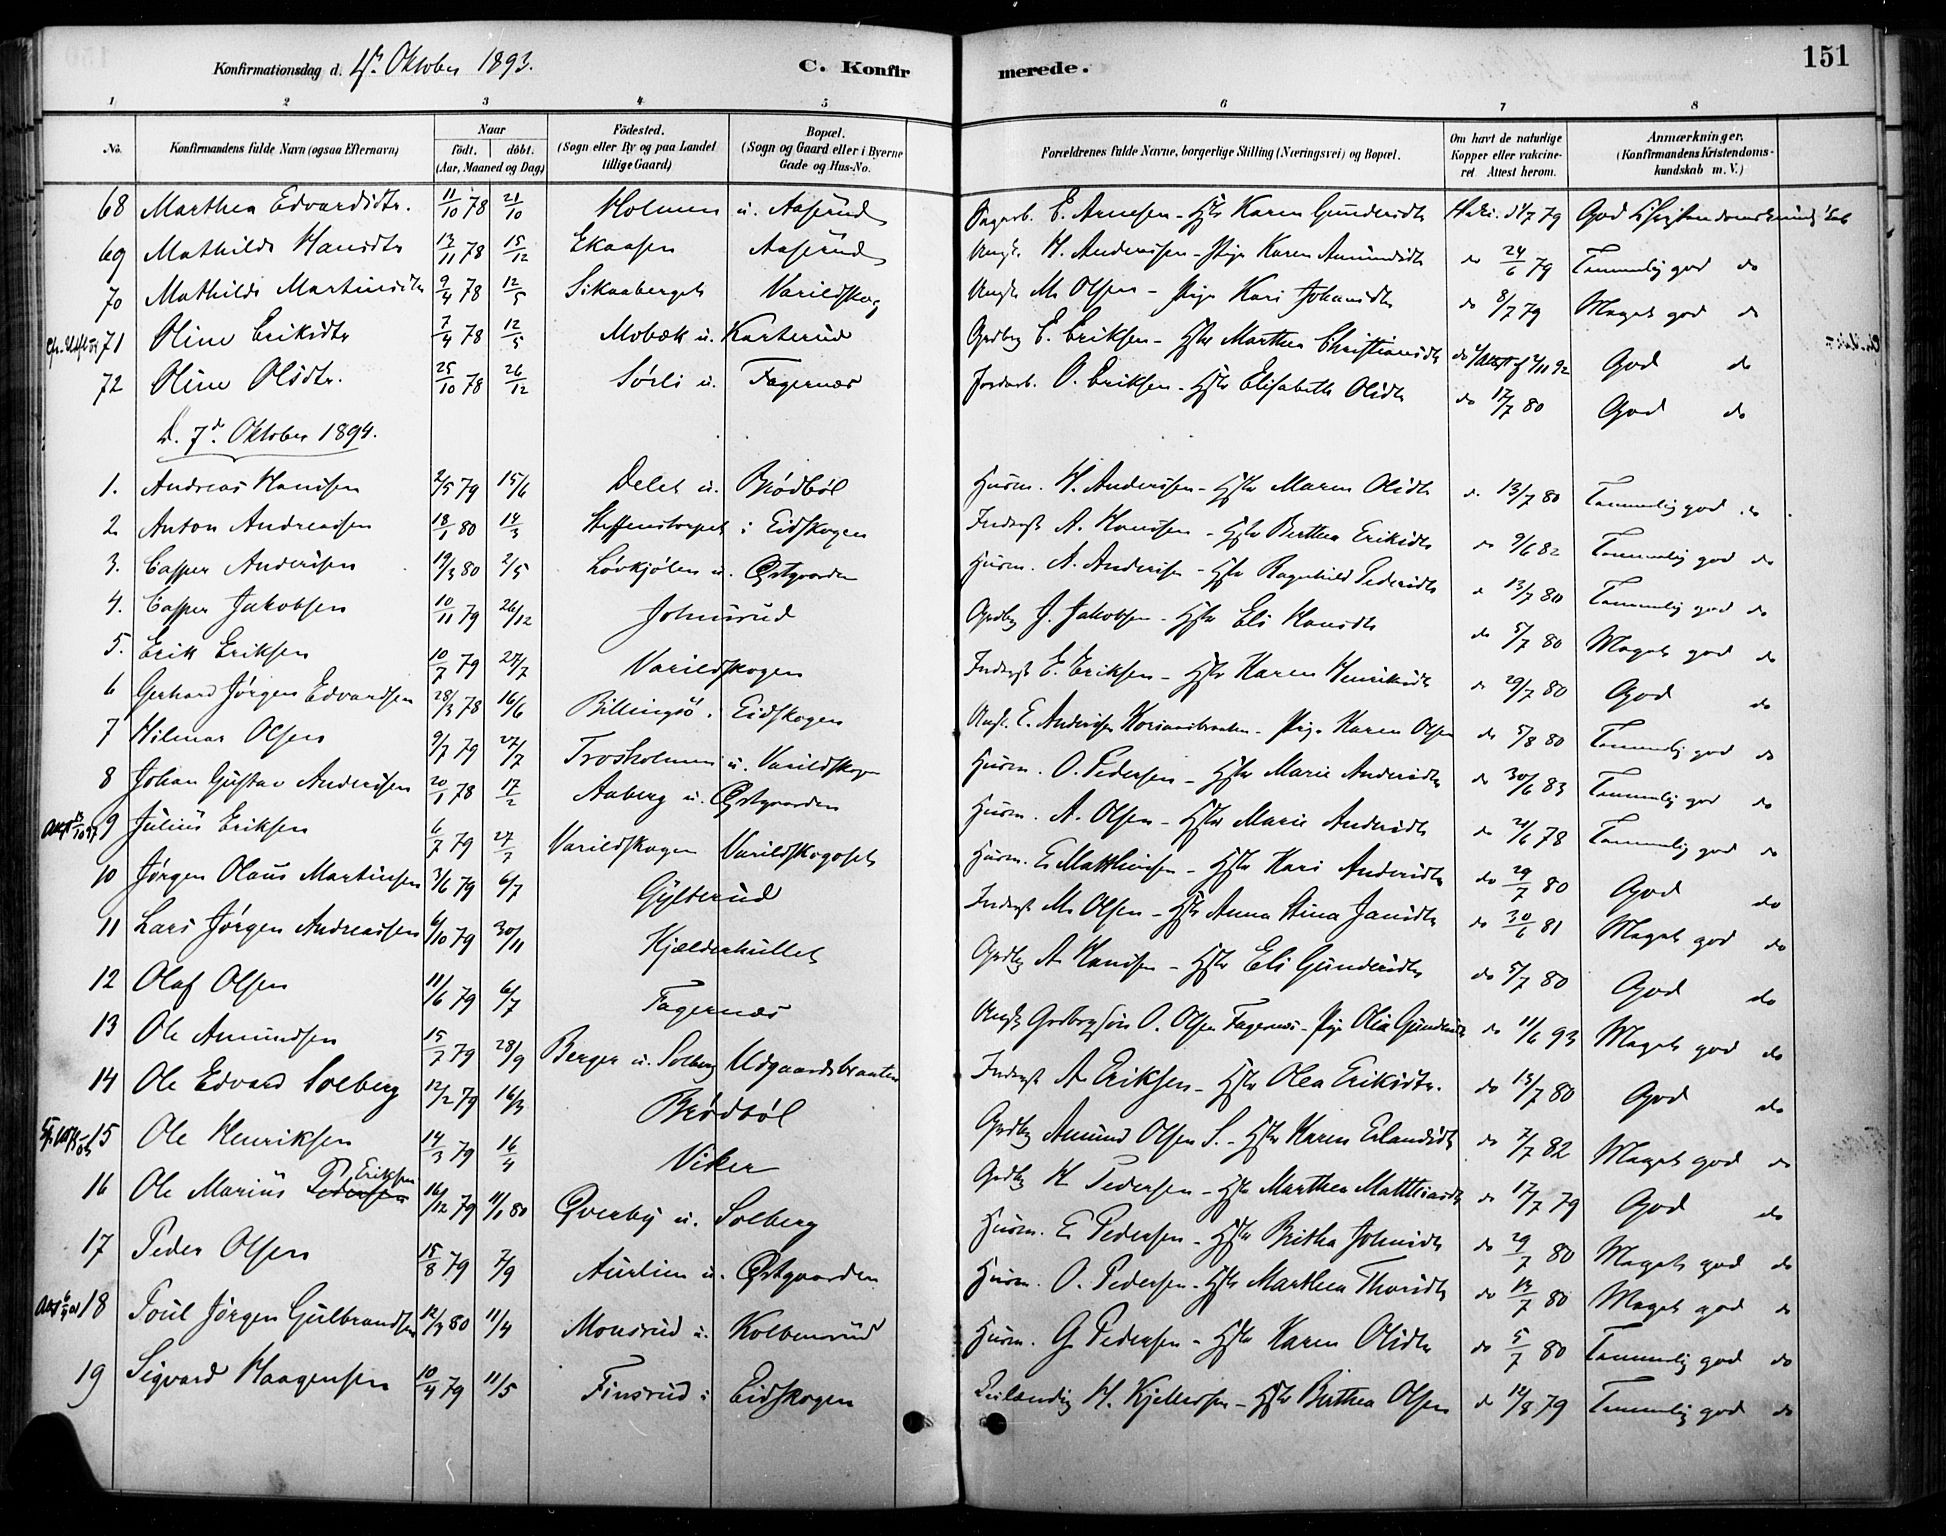 Konfirmationsdag d. Oktober 1893. C. Konfirmerede. 151
1 2 3 4 5 6 7 8
No. Konfirmandens fulde Navn (ogsaa Efternavn) Naar født. døbt. (Aar, Maaned og Dag) Födested. (Sogn eller By og paa Landet tillige Gaard) Bopæl. (Sogn og Gaard eller i Byerne Gade og Hus-No. Forældrenes fulde Navne, borgerlige Stilling (Næringsvei) og Bopæl. Om havt de naturlige Kopper eller vakcineret Attest herom. Anmærkninger. (Konfirmandens Kristendomskundskab m. V.)
68 Marthea Edvardsdtr. 11/10 78 21/10 Holmen u. Aaserud E. Arnesen - Hstr Karen Gundersdtr 79 God
69 Mathilde Hansdtr 13/11 78 15/12 Ekaasen Aaserud Ungk. H. Andersen - Pige Karen Amundsdtr do 24/6 79 Temmelig god do
70 Mathilde Martinsdtr 9/4 78 12/5 Sikaaberget Varildskog Ungk M. Olsen - Pige Kari Johansdtr do 8/7 79 Meget god do
71 Oline Eriksdtr 7/4 78 12/5 Mobæk u. Karterud Grdbrg E. Eriksen - Hstr Marthea Christiansdtr do 92 God do
72 Oline Olsdtr. 25/10 78 26/12 Sörli u. Fagernæs Jordarb. O. Eriksen - Hstr Elisabeth Olsdtr do 17/7 80 God do
D. 7de Oktober 1894.
1. Andreas Hansen 2/5 79 15/6 Delet u. Brödböl Husm. H. Andersen - Hstr Maren Olsdtr do 13/7 80 Temmelig god do
2 Anton Andreasen 18/1 80 14/3 Steffenstorpet i Eidskogen Inderst A. Hansen - Hstr Berthea Eriksdtr do 9/6 82 Temmelig god do
3. Casper Andersen 19/3 80 2/5 Lövkjölen u. Østgaarden Husm. A. Andersen - Hstr Ragnhild Pedersdtr do 13/7 80 Temmelig god do
4. Casper Jakobsen 10/11 79 26/12 Johnsrud Grdbrg J. Jakobsen - Hstr Eli Hansdtr do 5/7 80 Meget god do
5. Erik Eriksen 10/7 79 27/7 Varildskogen Inderst E. Eriksen - Hstr Karen Henriksdtr do 29/7 80 God do
6 Gerhard Jörgen Edvardsen 28/3 78 16/6 Billingsö i Eidskogen Ungk. E. Andersen - Pige Karen Olsen do 5/8 80 Temmelig god do
7 Hilmar Olsen 9/7 79 27/7 Trosholmen u. Varildskogen Husm. O. Pedersen - Hstr Marie Andersdtr do 30/6 83 Temmelig god do
8 Johan Gustav Andersen 20/1 78 17/2 Aaberg u. Østgaarden Husm. A. Olsen - Hstr Marie Andersdtr do 21/6 78 Temmelig god do
9 Julius Eriksen 6/7 79 27/7 Varildskogen Varildskogoset Husm. E. Matthisen - Hstr Kari Andersdtr do 29/7 80 God do
10 Jörgen Olaus Martinsen 3/6 79 6/7 Gylterud Inderst M. Olsen - Hstr Anna Stina Jansdtr do 30/6 81 Meget god do
11 Lars Jörgen Andreasen 6/10 79 30/11 Kjælderhullet Grdbrg A. Hansen - Hstr Eli Gundersdtr do 5/7 80 God do
12 Olaf Olsen 11/6 79 6/7 Fagernæs Ungk Grdbrgsön O. Olsen Fagernæs - Pige Olea Gundersdtr do 11/6 93 Meget god do
13 Ole Amundsen 15/7 79 28/9 Berger u. Solberg Udgaardsbraaten Inderst A. Eriksen - Hstr Olea Eriksdtr. do 13/7 80 God do
14 Ole Edvard Solberg 12/2 79 16/3 Brödböl Grdbrg Amund Olsen S. - Hstr Karen Erlandsdtr do 7/7 82 Meget god do
15 Ole Henriksen 14/3 79 16/4 Viker Grdbrg H. Pedersen - Hstr Marthea Matthisdtr do 17/7 79 God do
16 Ole Marius Pedersen Eriksen 16/12 79 11/1 80 Qverby u. Solberg Husm. E. Pedersen - Hstr Britha Johnsdtr do 29/7 80 Meget god do
17 Peder Olsen 15/8 79 7/9 Aurlien u. Østgaarden Husm. O. Pedersen - Hstr Marthea Thorsdtr do 13/7 80 Meget god do
18 Poul Jörgen Gulbrandsen 12/3 80 11/4 Monsrud u. Kolbensrud Husm. G. Pedersen - Hstr Karen Olsdtr do 5/7 80 Temmelig god do
19 Sigvard Haagensen 10/4 79 11/5 Finsrud i Eidskogen H. Kjeldsen - Hstr Berthea Olsen do 12/8 79 Temmelig god do